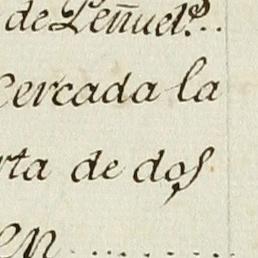 de Peñuel.s..
cercada la
rta de dos
en ........